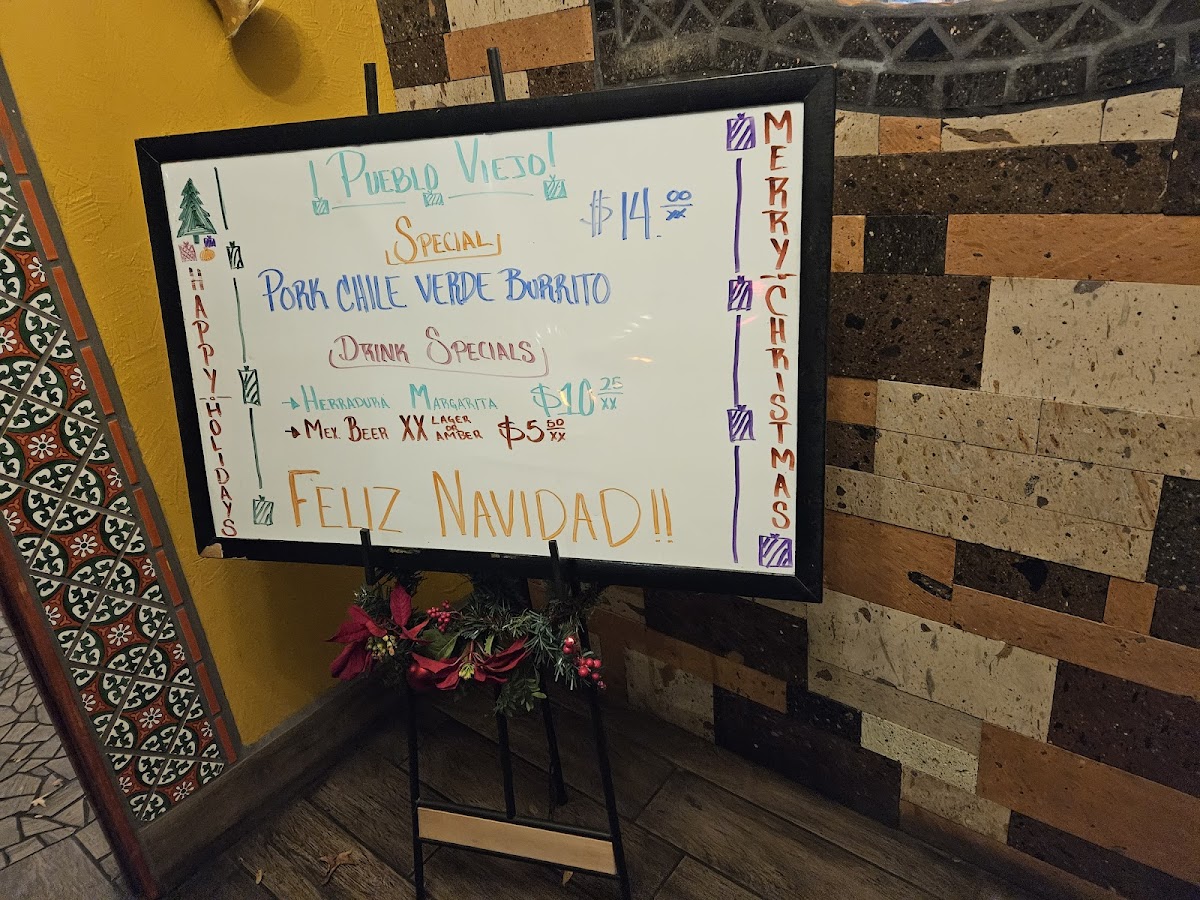 ¡PUEBLO VIEJO!
SPECIAL
$14.00/xx
PORK CHILE VERDE BURRITO
DRINK SPECIALS
→HERRADURA MARGARITA $10 25/XX
→MEX. BEER XX LAGER OR AMBER $5 50/XX
FELIZ NAVIDAD!!
HAPPY HOLIDAYS
MERRY CHRISTMAS